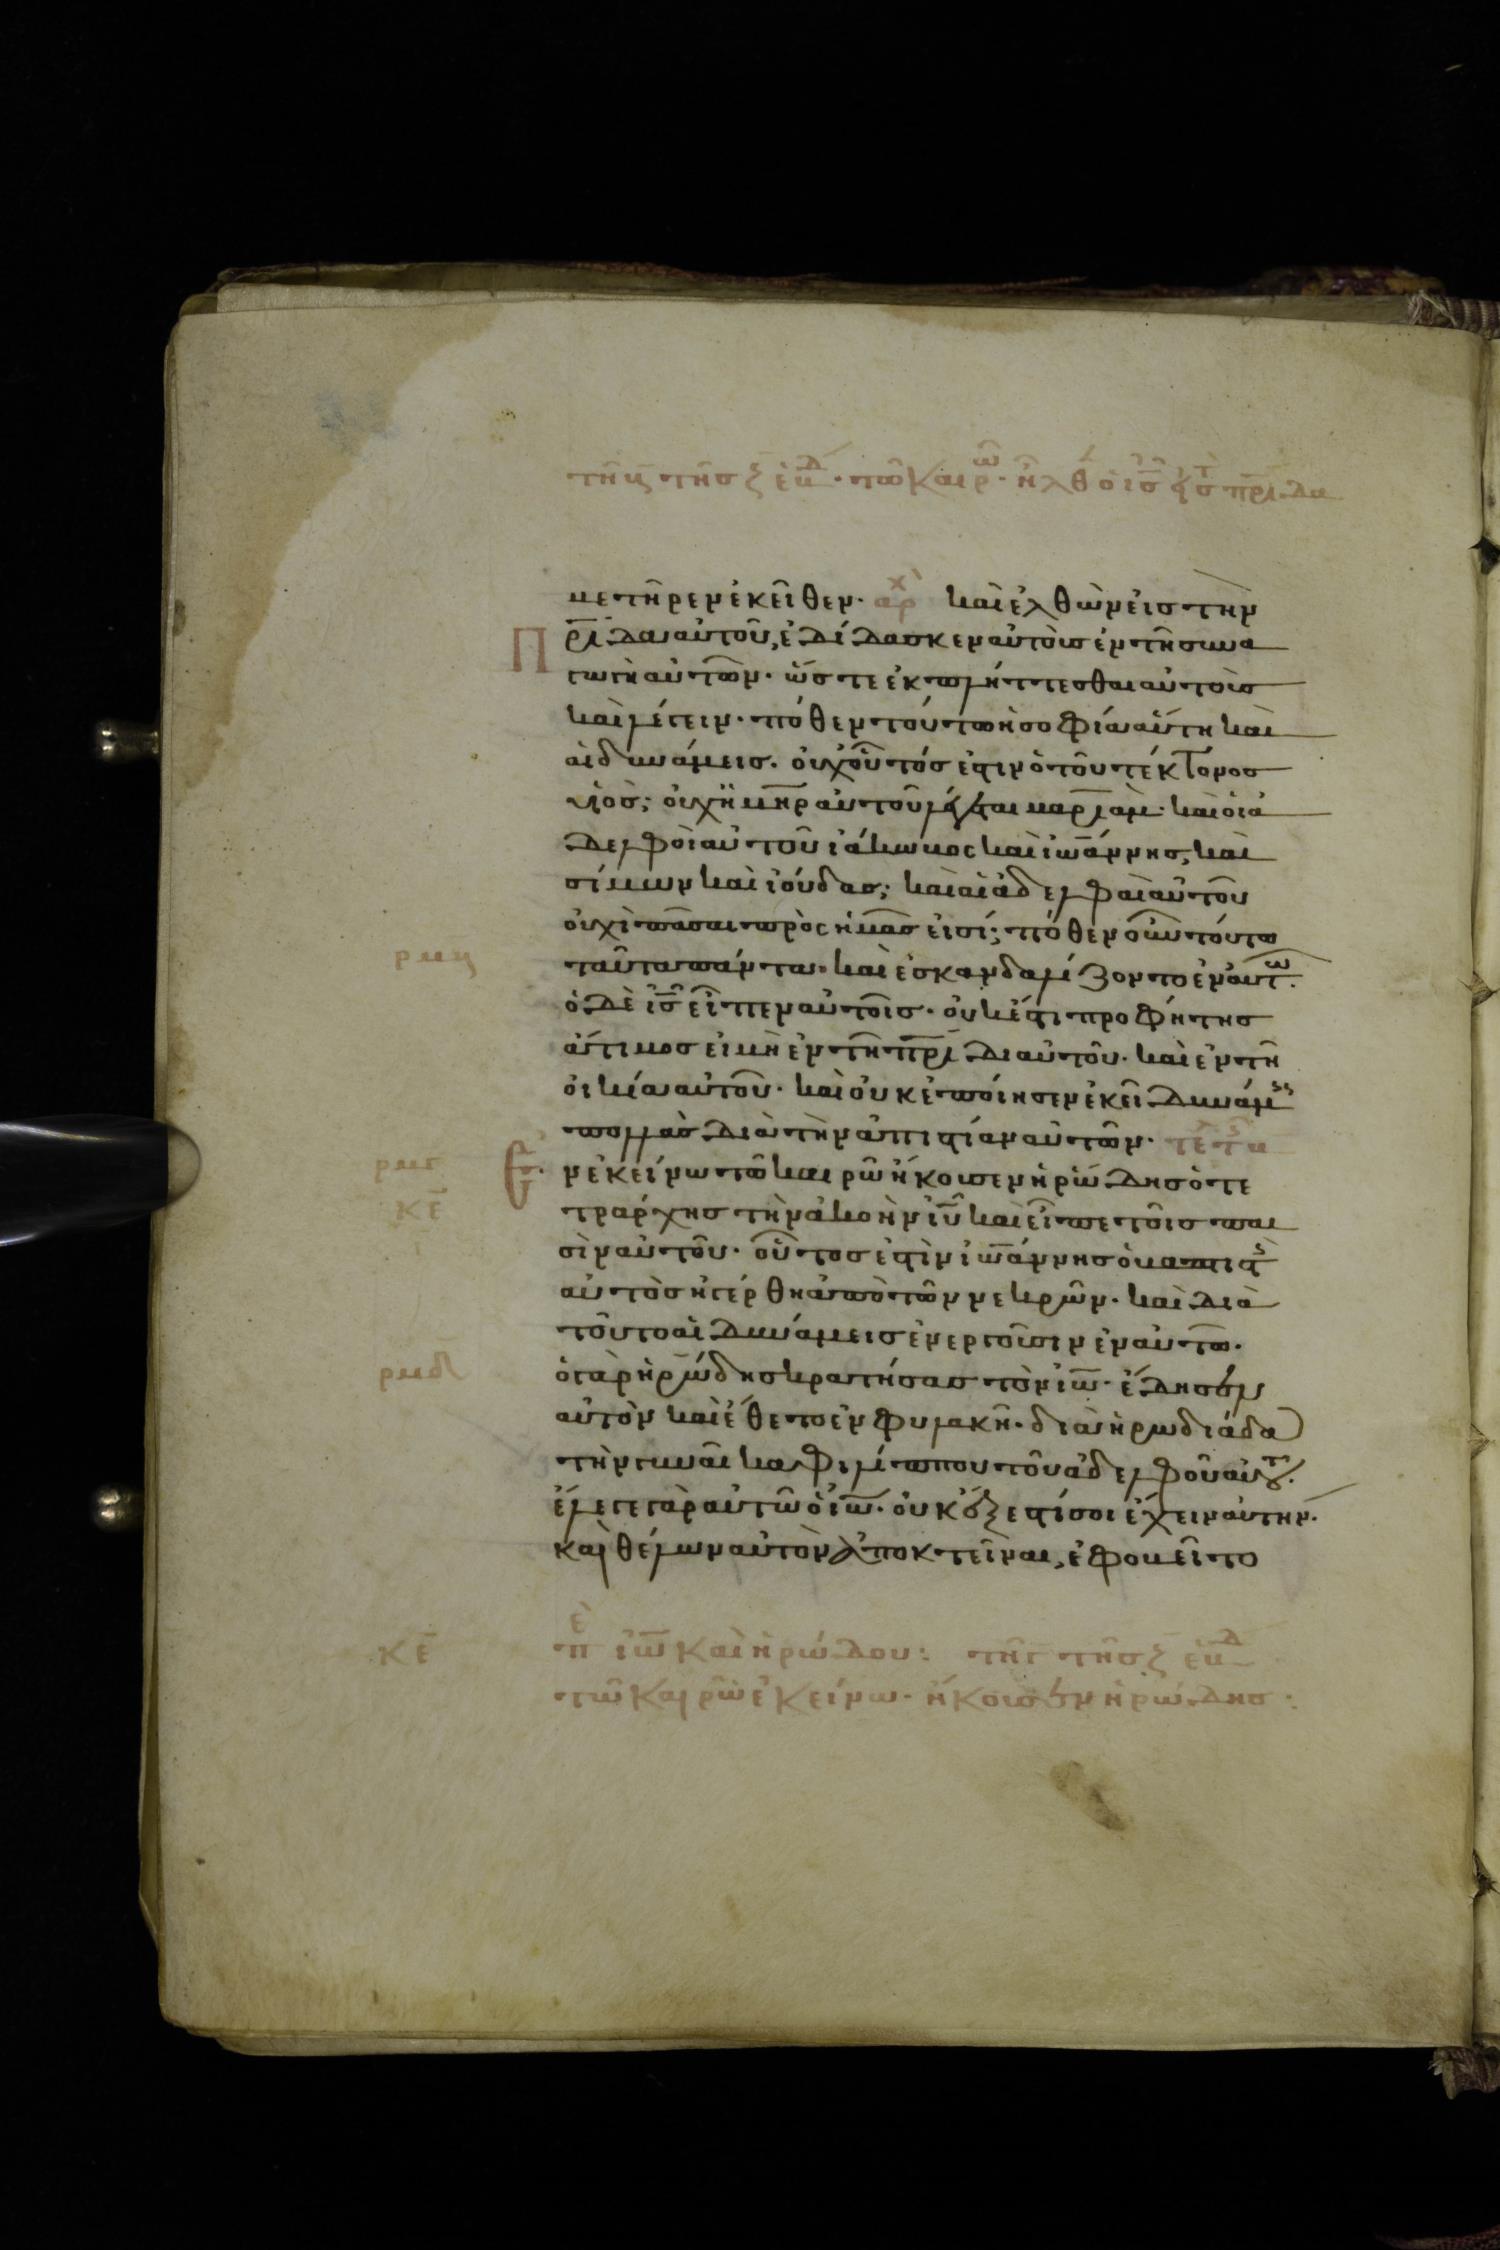 τῆ ϛ τῆς ζ ἑβδ· τῶ καιρῶ· ἦλθ ὁ ις εἰς τ πρίδα
μετῆρεν ἐκεῖθεν· ἀρχ καὶ ἐλθὼν εἰς τὴν
πρίδα αὐτοῦ, ἐδίδασκεν αὐτοὺς ἐν τῆ συνα
γωγῆ αὐτῶν· ὥστε ἐκπλήττεσθαι αὐτοὺς
καὶ λέγειν· πόθεν τούτω ἡ σοφία αὕτη καὶ
αἱ δυνάμεις. οὐχ οὗτός ἐστιν ὁ τοῦ τέκτονος
υἱός; οὐχὶ ἡ μηρ αὐτοῦ λέγεται μαριὰμ· καὶ οἱ ἀ
δελφοὶ αὐτοῦ ἰάκωβος καὶ ἰωάννης, καὶ
σίμων καὶ ἰούδας; καὶ αἱ ἀδελφαὶ αὐτοῦ
οὐχὶ πᾶσαι πρὸς ἡμᾶς εἰσί; πόθεν οὖν τούτω
ρμβ ταῦτα πάντα· καὶ ἐσκανδαλίζοντο ἐν αὐτῶ.
ὁ δὲ ις εἶπεν αὐτοῖς· οὐκ ἔστι προφήτης
ἄτιμος εἰ μὴ ἐν τῆ πρίδι αὐτοῦ· καὶ ἐν τῆ
οἰκία αὐτοῦ· καὶ οὐκ ἐποίησεν ἐκεῖ δυνάμεις
πολλὰς διὰ τὴν ἀπιστίαν αὐτῶν·
ρμγ Ἐν ἐκείνω τῶ καιρῶ ἤκουσεν ἡρώδης ὁ τε
κε τράρχης τὴν ἀκοὴν ιυ καὶ εἶπε τοῖς παι
σὶν αὐτοῦ· οὗτος ἐστὶν ἰωάννης ὁ βαπτιστ
αὐτὸς ἠγέρθη ἀπὸ τῶν νεκρῶν· καὶ διὰ
τοῦτο αἱ δυνάμεις ἐνεργοῦσιν ἐν αὐτῶ.
ρμδ ὁ γὰρ ἡρώδης κρατήσας τὸν ἰω· ἔδησεν
αὐτὸν καὶ ἔθετο ἐν φυλακῆ· διὰ ἡρωδιάδα
τὴν γυναῖκα φιλίππου τοῦ ἀδελφοῦ αὐτοῦ.
ἔλεγε γὰρ αὐτῶ ὁ ἰω· οὐκ ἔξεστί σοι ἔχειν αὐτήν.
καὶ θέλων αὐτὸν ἀποκτεῖναι, ἐφοβεῖτο
κε πε ἰω καὶ ἡρώδου: τῆ γ τῆς ζ ἑβδ
τῶ καιρῶ ἐκείνω· ἤκουσεν ἡρώδης: